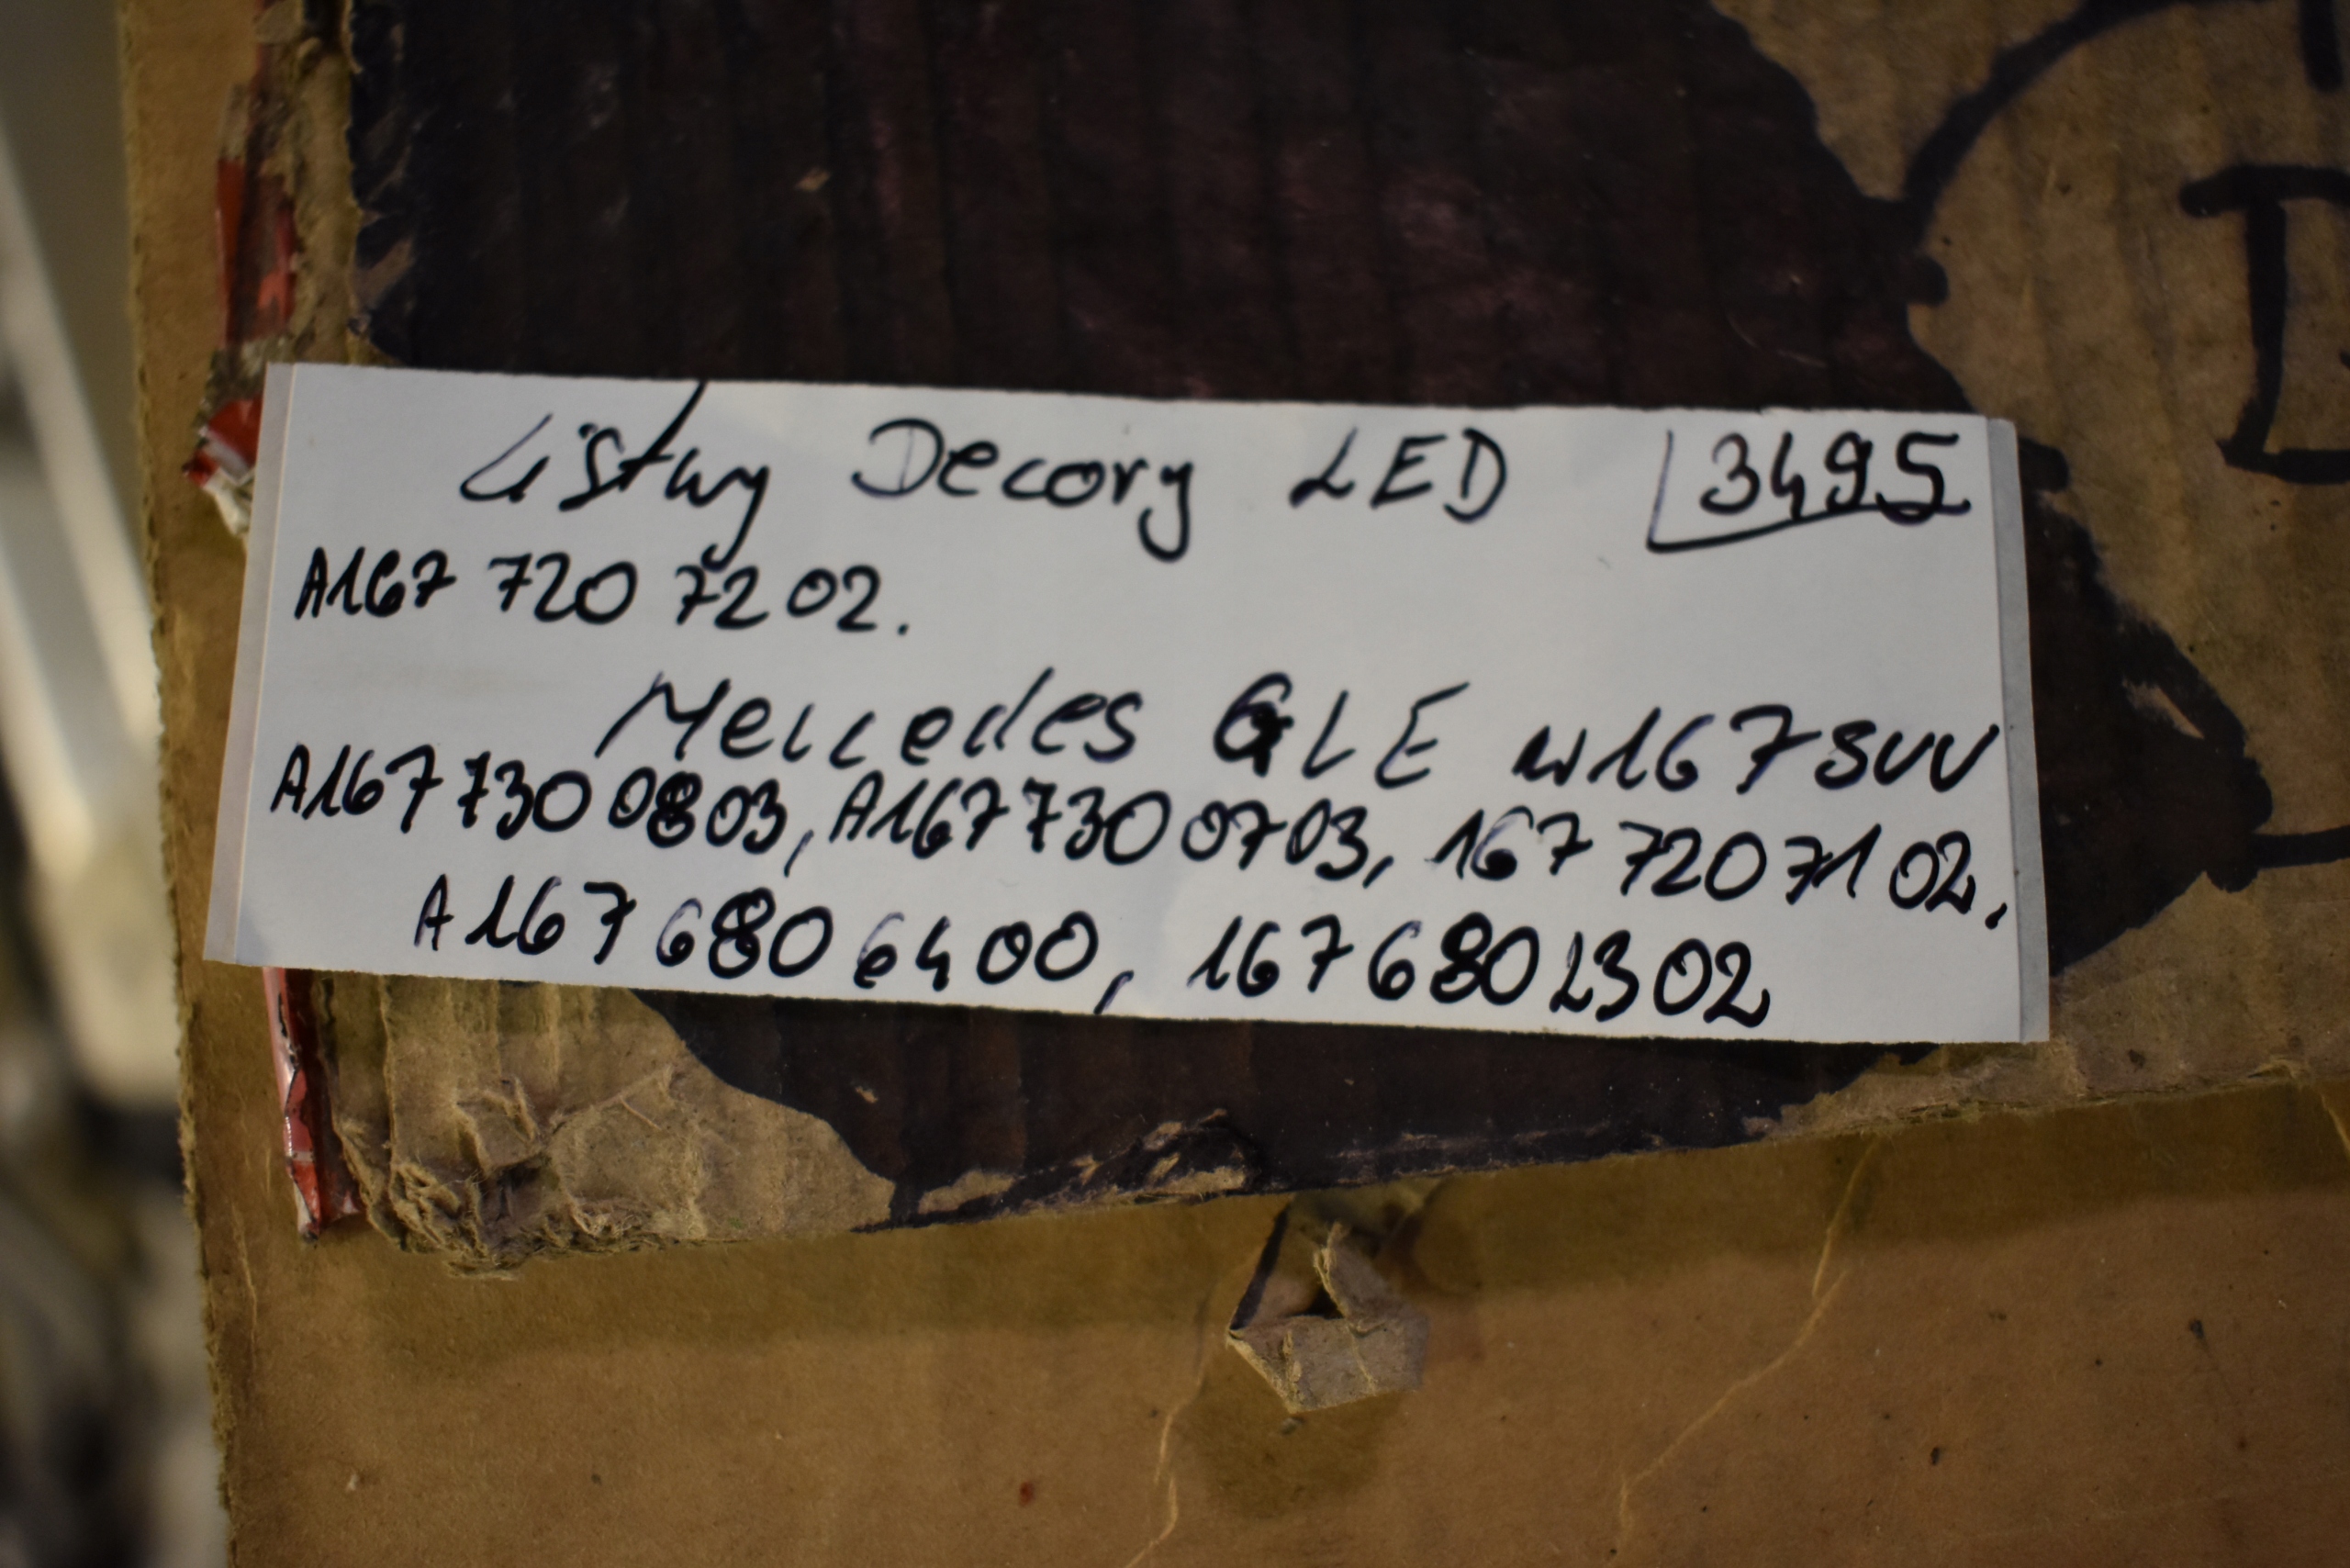 Listwy Decory LED 3495
A167 720 72 02.
Mercedes GLE W167 SUV
A167 730 08 03, A167 730 07 03, 167 720 71 02.
A 167 680 64 00, 167 680 23 02